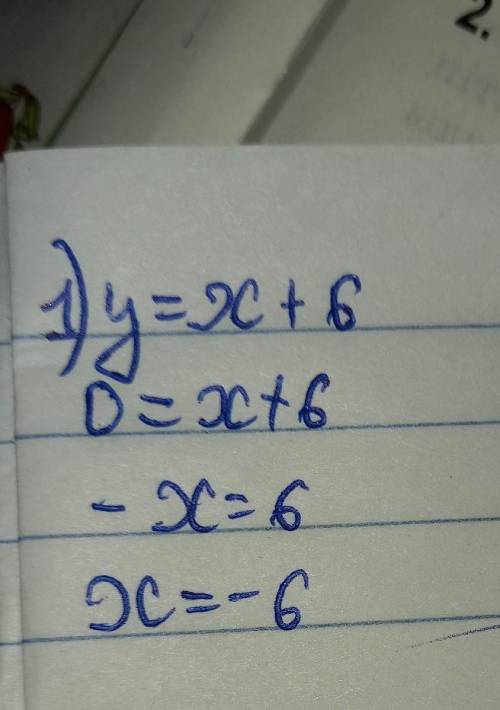 2.
1) y = x + 6
0 = x + 6
- x = 6
x = - 6